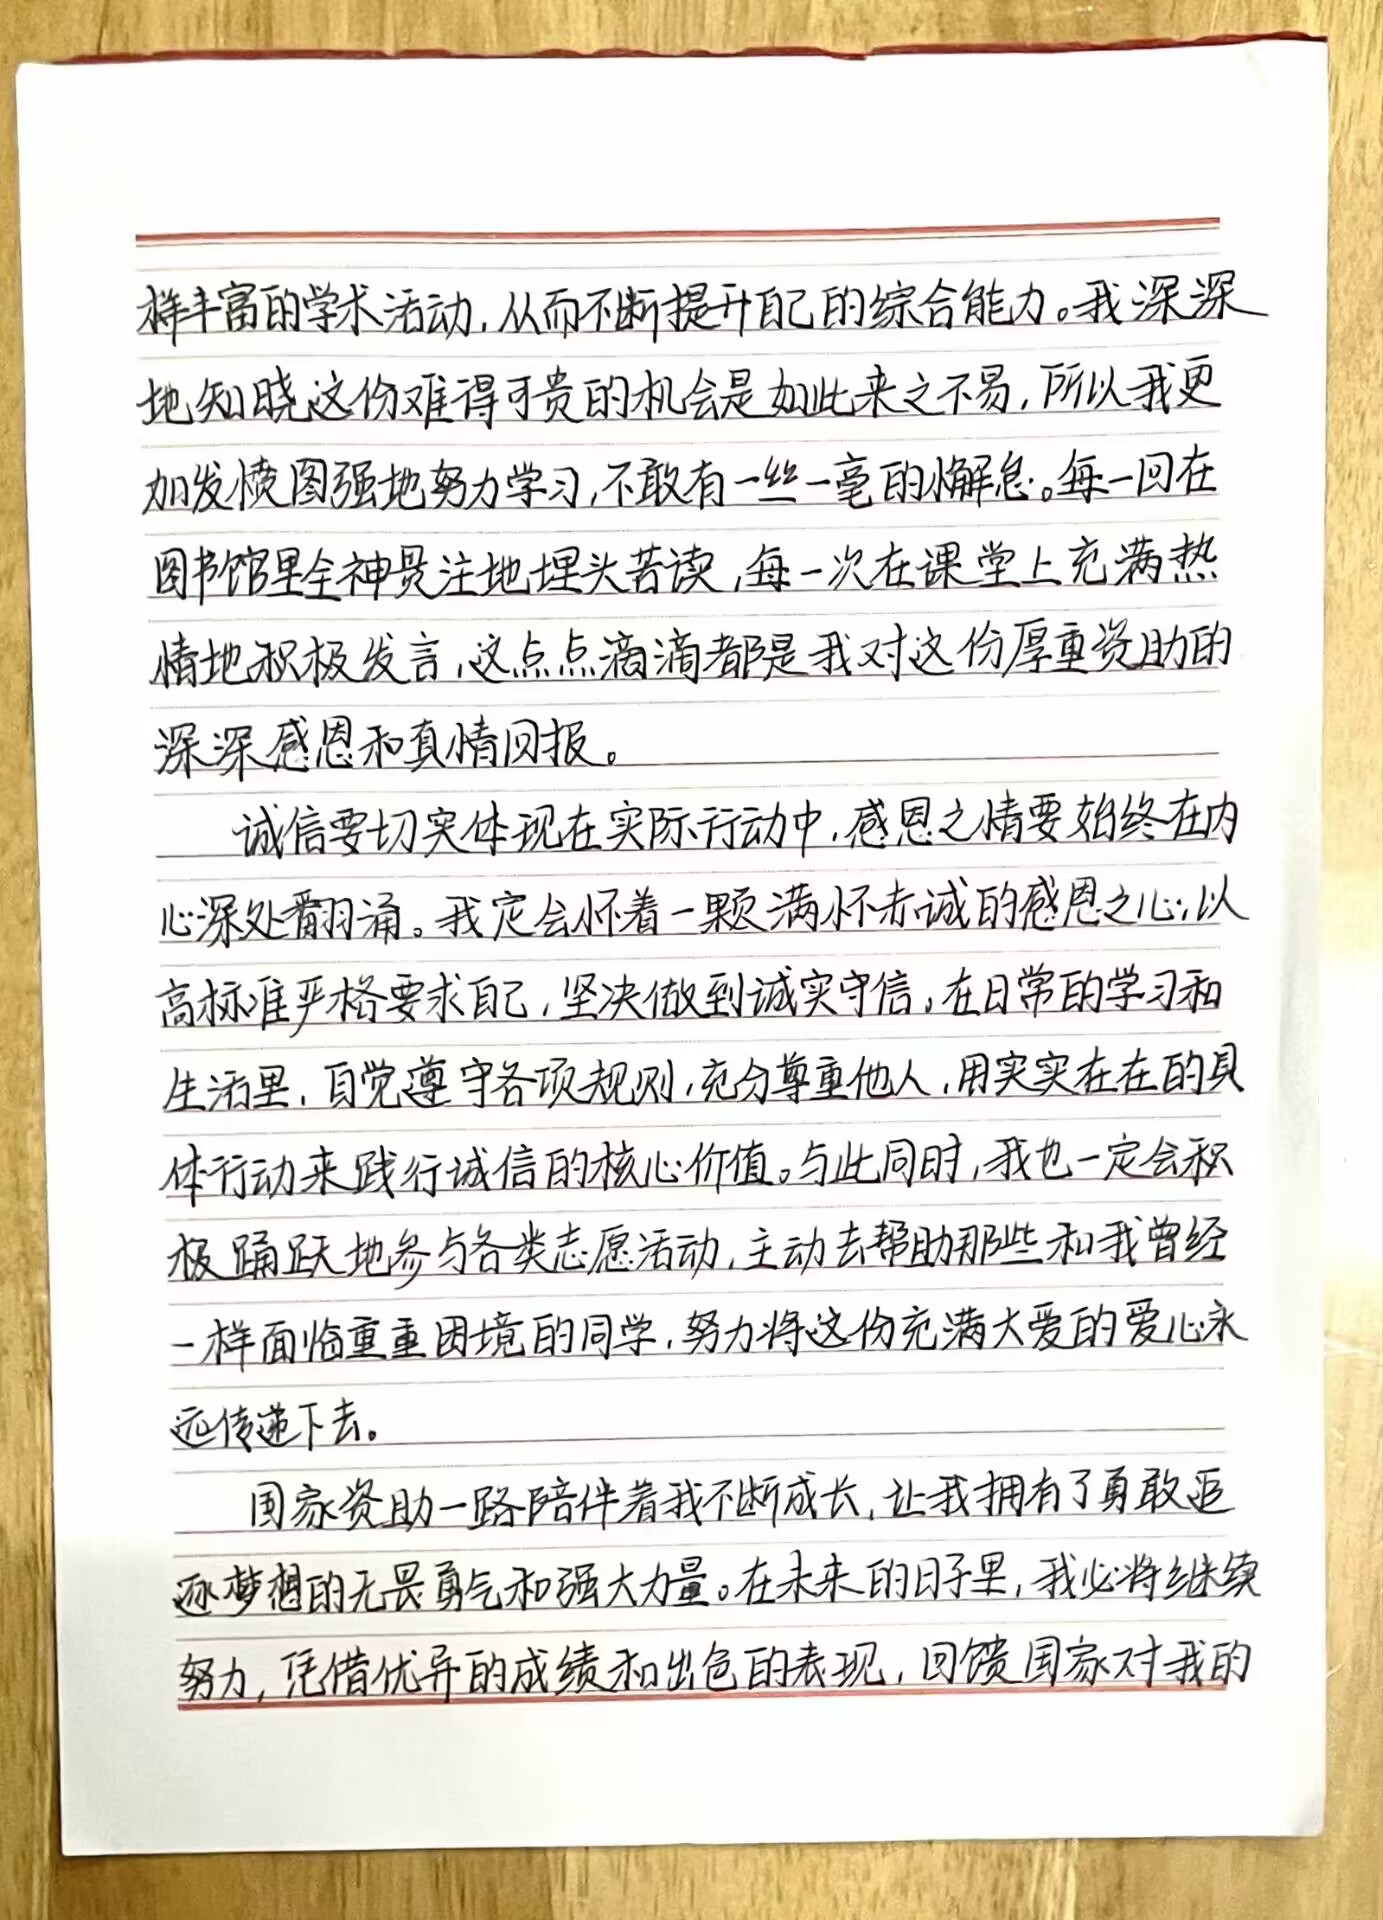 样丰富的学术活动,从而不断提升自己的综合能力。我深深
地知晓这份难得可贵的机会是如此来之不易,所以我更
加发愤图强地努力学习,不敢有一丝一毫的懈怠。每一回在
图书馆里全神贯注地埋头苦读,每一次在课堂上充满热
情地积极发言,这点点滴滴都是我对这份厚重资助的
深深感恩和真情回报。
诚信要切实体现在实际行动中,感恩之情要始终在内
心深处翻涌。我定会怀着一颗满怀赤诚的感恩之心,以
高标准严格要求自己,坚决做到诚实守信,在日常的学习和
生活里,自觉遵守各项规则,充分尊重他人,用实实在在的具
体行动来践行诚信的核心价值。与此同时,我也一定会积
极踊跃地参与各类志愿活动,主动去帮助那些和我曾经
一样面临重重困境的同学,努力将这份充满大爱的爱心永
远传递下去。
国家资助一路陪伴着我不断成长,让我拥有了勇敢追
逐梦想的无畏勇气和强大力量。在未来的日子里,我必将继续
努力,凭借优异的成绩和出色的表现,回馈国家对我的